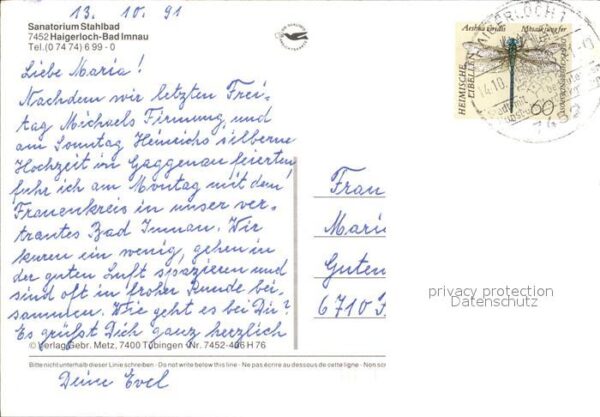 13. 10. 91
Sanatorium Stahlbad
7452 Haigerloch-Bad Imnau
Tel. (0 74 74) 6 99 - 0
Liebe Maria!
Nachdem wir letzten Frei-
tag Michaels Firmung, und
am Sonntag Heinrichs silberne
Hochzeit in Gaggenau feierten,
fuhr ich am Montag mit dem
Frauenkreis in unser ver-
trautes Bad Imnau. Wir
kuren ein wenig, gehen in
der guten Luft spazieren und
sind oft in froher Runde bei-
sammen. Wie geht es bei Dir?
Es grüßt Dich ganz herzlich
© Verlag Gebr. Metz, 7400 Tübingen Nr. 7452-406 H 76
Bitte nicht unterhalb dieser Linie schreiben - Do not write below this line - Ne pas écrire au dessous de cette ligne - Non scr
Deine Evel
Aeshna viridis
HEIMISCHE
LIBELLEN
60
14.10.
7452
Frau
Mari
Guten
6710
privacy protection
Datenschutz